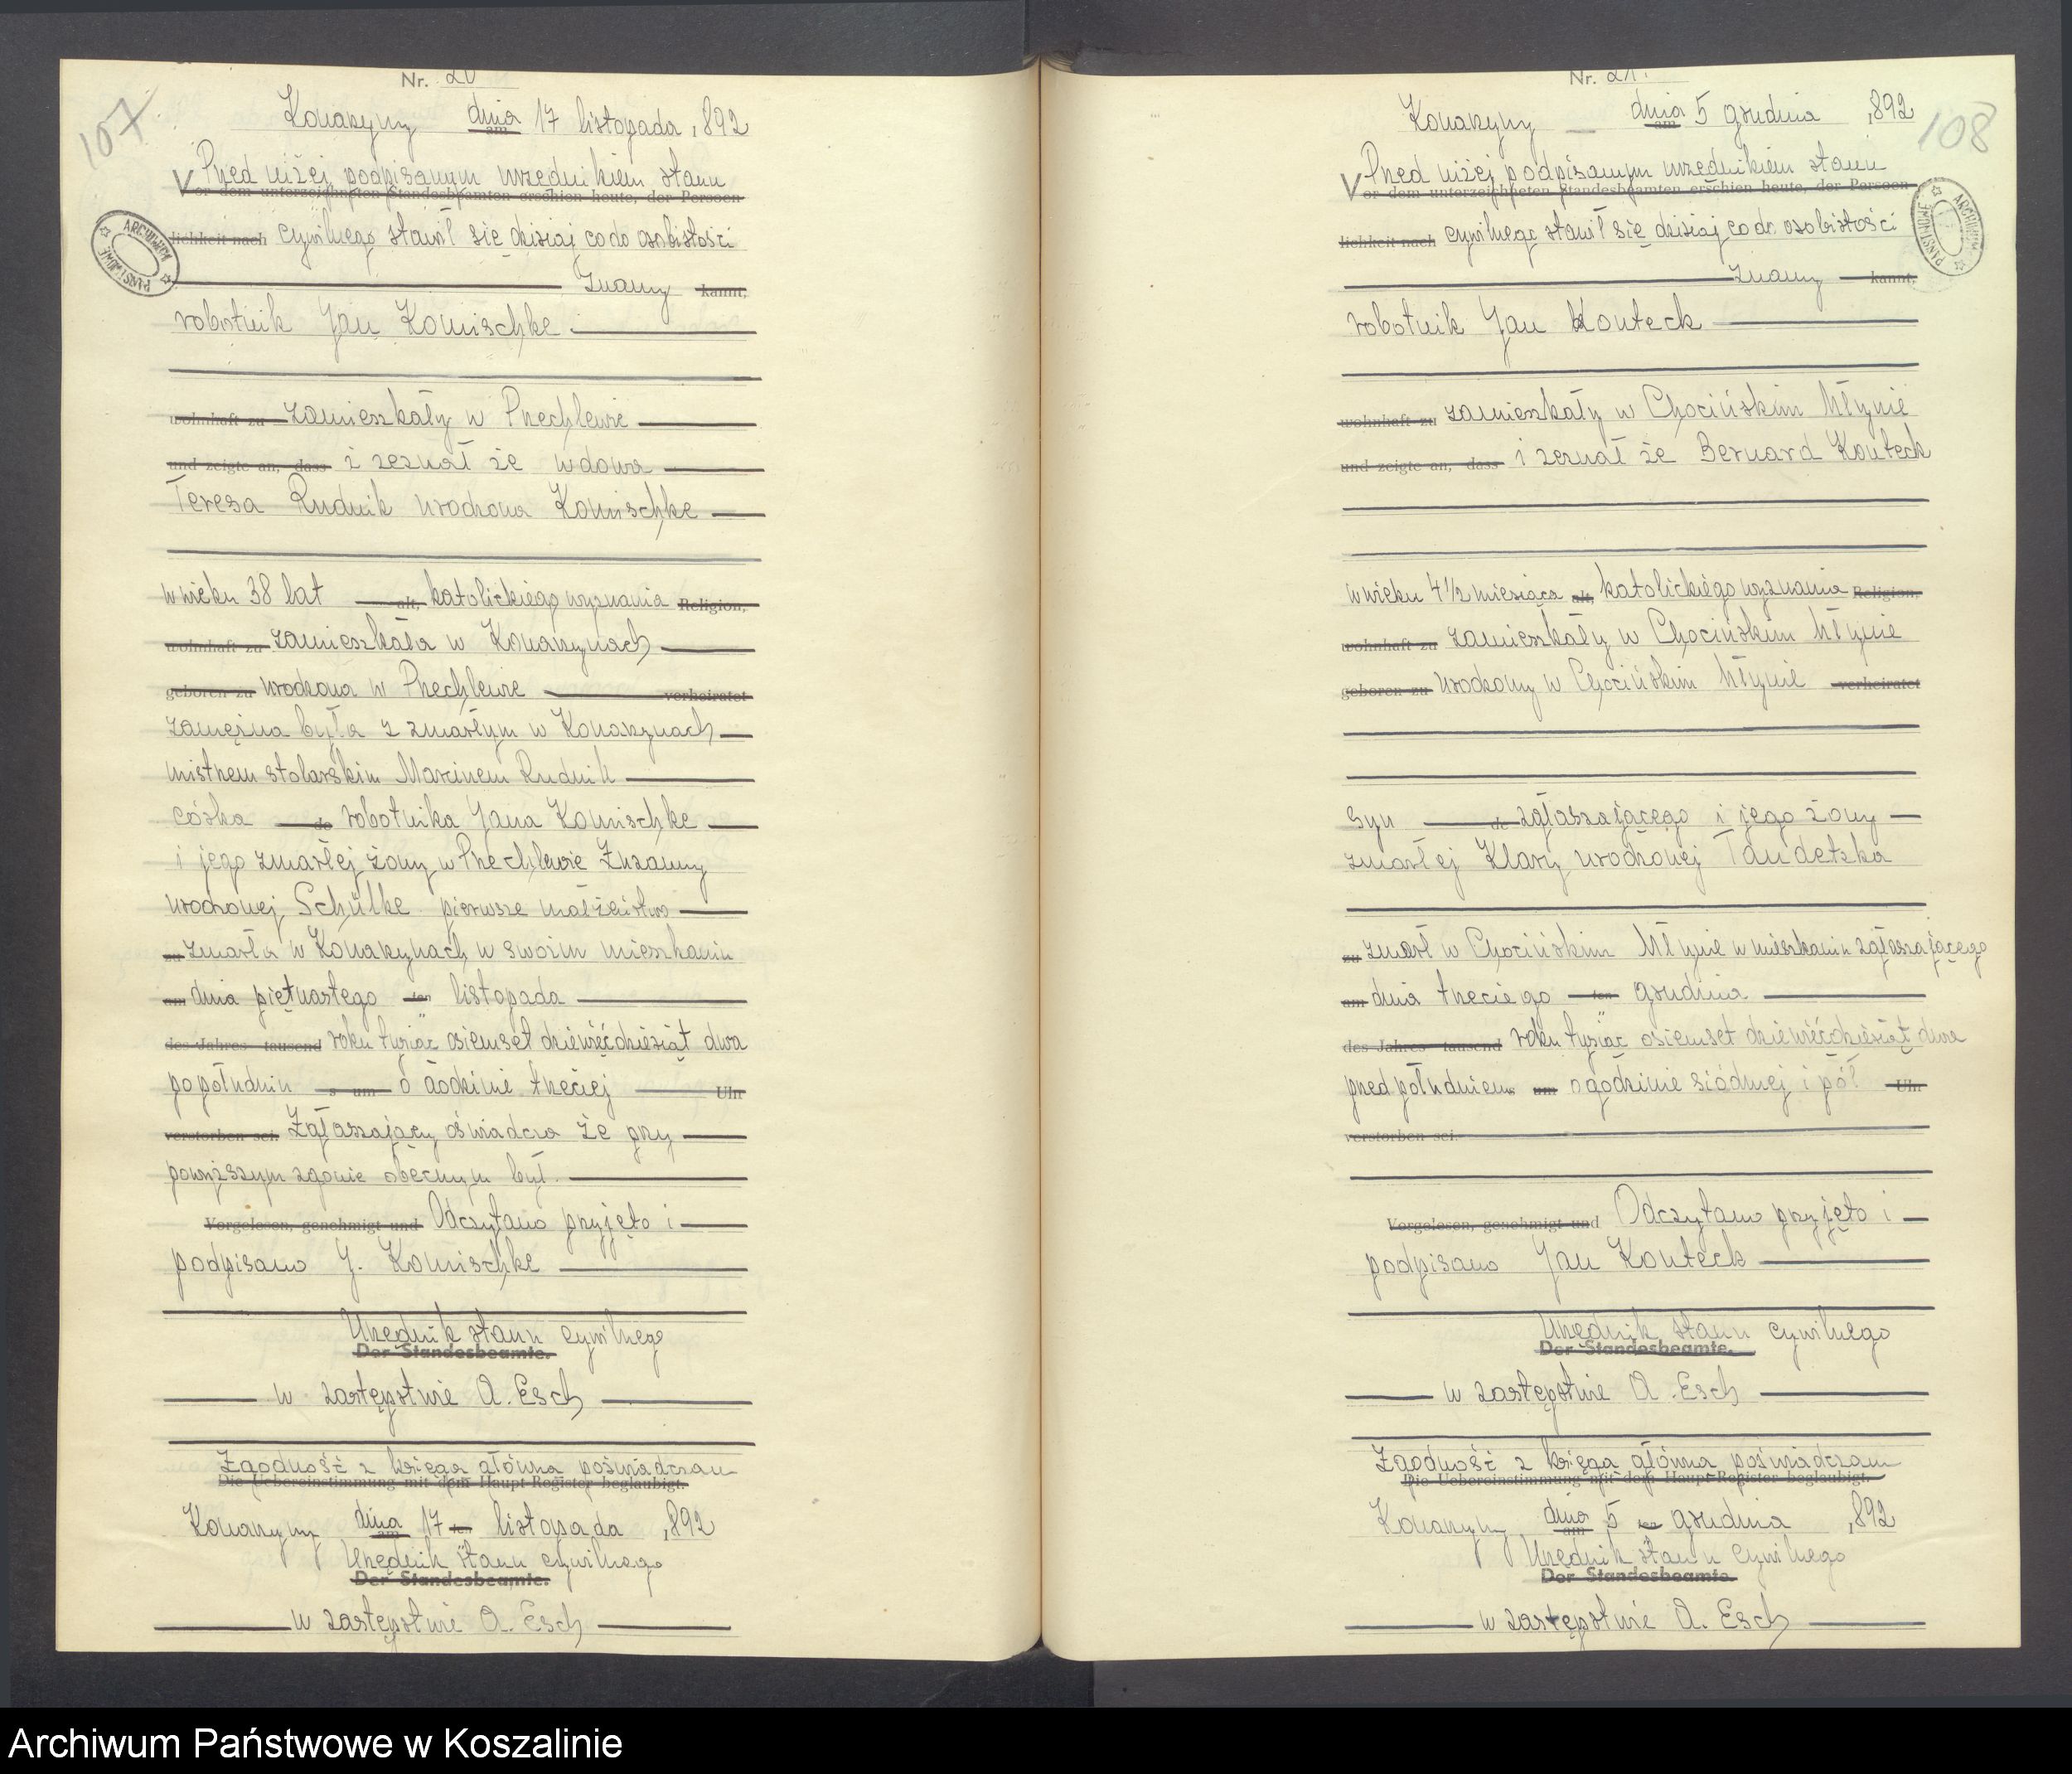 107
Nr. 20
Konarzyny dnia am 17 listopada ,892
Przed niżej podpisanym urzednikiem stanu
Vor dem unterzeichneten Standesbeamten erschien heute, der Persoen
lichkeit nach cywilnego stawił się dzisiaj co do osobistości
znany kannt,
robotnik Jan Komischke
wohnhaft zu zamieszkały w Przechlewie
und zeigte an, dass i zeznał że wdowa
Teresa Rudnik urodzona Komischke
w wieku 38 lat alt, katolickiego wyznania Religion,
wohnhaft zu zamieszkała w Konarzynach
geboren zu urodzona w Przechlewie verheiratet
zamężna była z zmarłym w Konarzynach
mistrzem stolarskim Marcinem Rudnik
córka de robotnika Jana Komischke
i jego zmarłej żony w Przechlewie Zuzanny
urodzonej Schülke pierwsze małżeństwo
zu zmarła w Konarzynach w swoim mieszkaniu
am dnia piętnastego ten listopada
des Jahres tausend roku tysiąc osiemset dziewięćdziesiąt dwa
popołudniu s um o godzinie trzeciej Uhr
verstorben sei. Zgłaszający oświadcza że przy
powyższym zgonie obecnym był.
Vorgelesen, genehmigt und Odczytano przyjęto i
podpisano J. Komischke
Urzędnik stanu cywilnego
Der Standesbeamte.
w zastępstwie A. Esch
Zgodność z księga główna poświadczam
Die Uebereinstimmung mit dem Haupt-Register beglaubigt.
Konarzyny dnia am 17 ten listopada ,892
Urzędnik stanu cywilnego
Der Standesbeamte.
w zastępstwie A. Esch
ARCHIWUM PAŃSTWOWE
108
Nr. 21.
Konarzyny dnia am 5 grudnia ,892
Przed niżej podpisanym urzędnikiem stanu
Vor dem unterzeichneten Standesbeamten erschien heute, der Persoen
lichkeit nach cywilnego stawił się dzisiaj co do osobistości
znany kannt,
robotnik Jan Konteck
wohnhaft zu zamieszkały w Chocińskim Młynie
und zeigte an, dass i zeznał że Bernard Konteck
w wieku 4 1/2 miesiąca alt, katolickiego wyznania Religion,
wohnhaft zu zamieszkały w Chocińskim Młynie
geboren zu urodzony w Chocińskim Młynie verheiratet
Syn de zgłaszającego i jego żony
zmarłej Klary urodzonej
zu zmarł w Chocińskim Młynie w mieszkaniu zgłaszającego
am dnia trzeciego ten grudnia
des Jahres tausend roku tysiąc osiemset dziewięćdziesiąt dwa
przed południem um o godzinie siódmej i pół Uhr
verstorben sei.
Vorgelesen, genehmigt und Odczytano przyjęto i
podpisano Jan Konteck
Urzędnik stanu cywilnego
Der Standesbeamte.
w zastępstwie A. Esch
Zgodność z księga główna poświadczam
Die Uebereinstimmung mit dem Haupt-Register beglaubigt.
Konarzyny dnia am 5 ten grudnia ,892
Urzędnik stanu cywilnego
Der Standesbeamte.
w zastępstwie A. Esch
ARCHIWUM PAŃSTWOWE
Archiwum Państwowe w Koszalinie